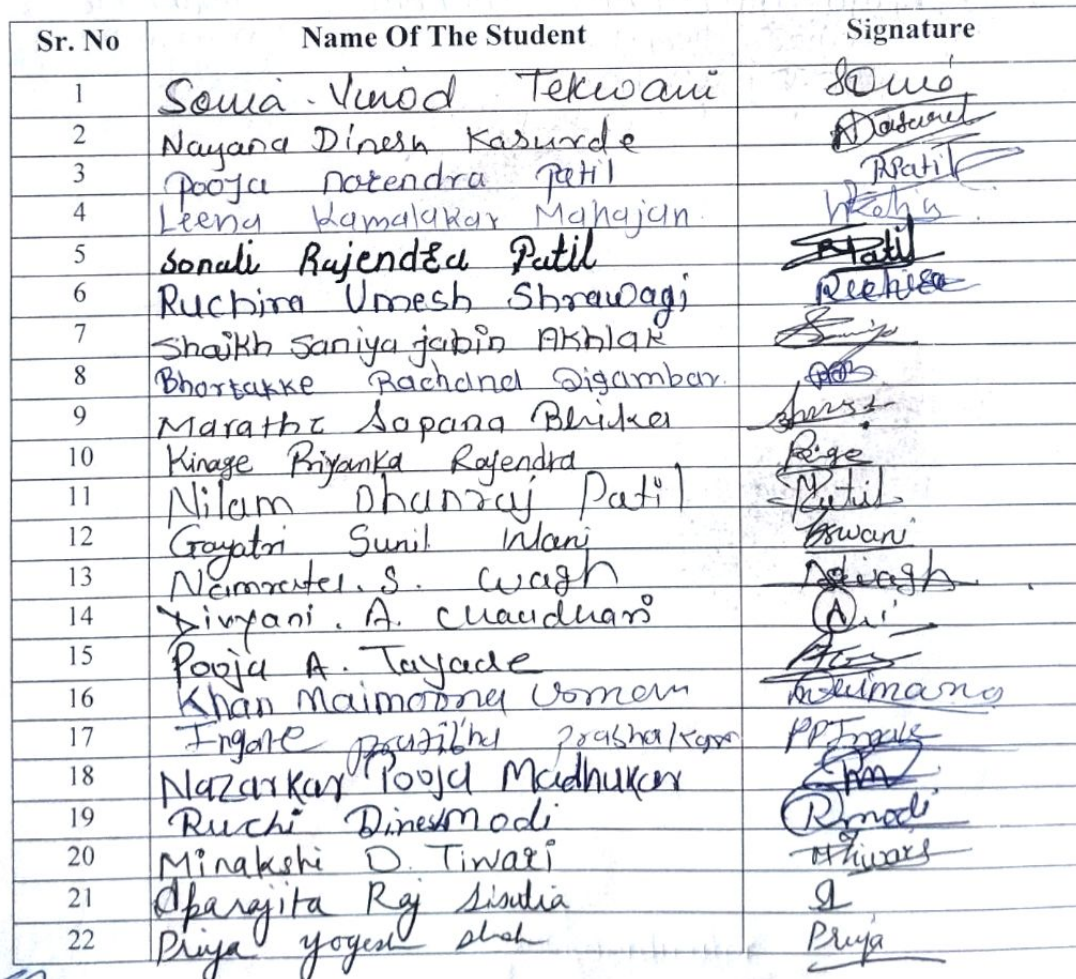 Sr. No Name Of The Student Signature
1 Sonia . Vinod Tekwani Sonia
2 Nayana Dinesh Kasurde
3 Pooja narendra patil PPatil
4 Leena Kamalakar Mahajan
5 Sonali Rajendra Patil RPatil
6 Ruchira Umesh Shrawagi Ruchira
7 Shaikh Saniya jabin Akhlak
8 Bhortakke Rachana Digambar.
9 Marathe Sapana Bhika
10 Kinage Priyanka Rajendra
11 Nilam Dhanraj Patil Patil
12 Gayatri Sunil Wani
13 Namrata . S. Wagh
14 Divyani . A. Chaudhari
15 Pooja A. Tayade
16 Khan Maimoona
17 Ingale pratibha prabhakar PPIngale
18 Nazarkar Pooja Madhukar
19 Ruchi Dinesh Modi Rmodi
20 Minakshi D. Tiwari
21 Aparajita Raj Sisodia
22 Priya yogesh shah Priya